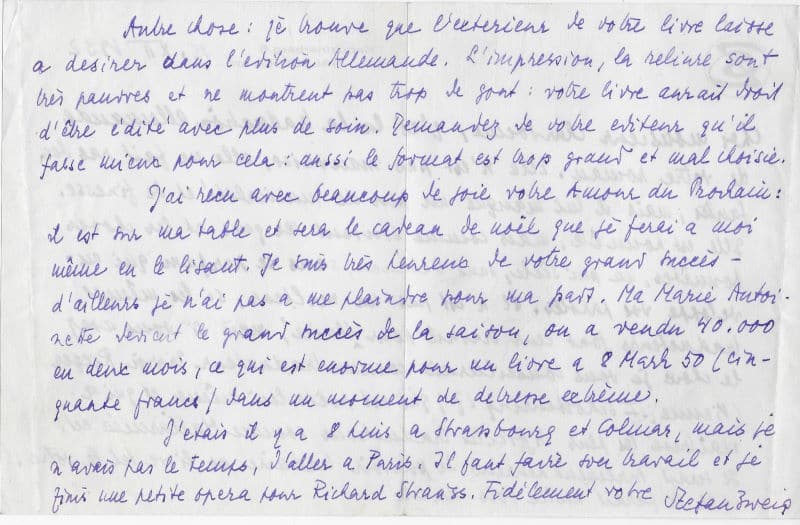 Autre chose : je trouve que l'exterieur de votre livre laisse
a desirer dans l'edition Allemande. L'impression, la reliure sont
très pauvres et ne montrent pas trop de gout : votre livre aurait droit
d'être édité avec plus de soin. Demandez de votre editeur qu'il
fasse mieux pour cela : aussi le format est trop grand et mal choisie.
J'ai recu avec beaucoup de joie votre Amour du Prochain :
il est sur ma table et sera le cadeau de noël que je ferai a moi
même en le lisant. Je suis très heureux de votre grand succès –
d'ailleurs je n'ai pas a me plaindre pour ma part. Ma Marie Antoi-
nette devient le grand succès de la saison, on a vendu 40.000
en deux mois, ce qui est enorme pour un livre a 8 Mark 50 (cin-
quante francs) dans un moment de detresse extrême.
J'etais il y a 8 jours a Strassbourg et Colmar, mais je
n'avais pas le temps, d'aller a Paris. Il faut faire son travail et je
finis une petite opera pour Richard Strauss. Fidèlement votre Stefan Zweig